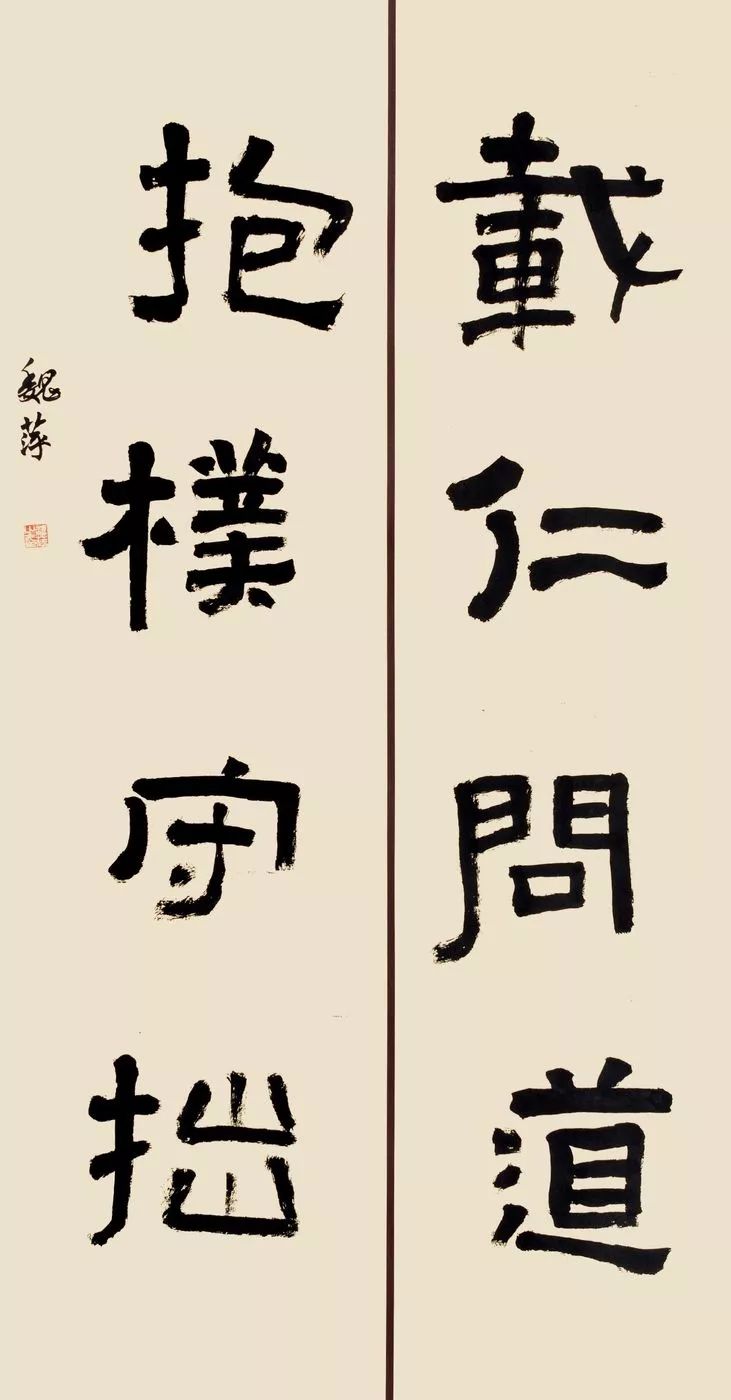 載仁問道
抱樸守拙
魏萍